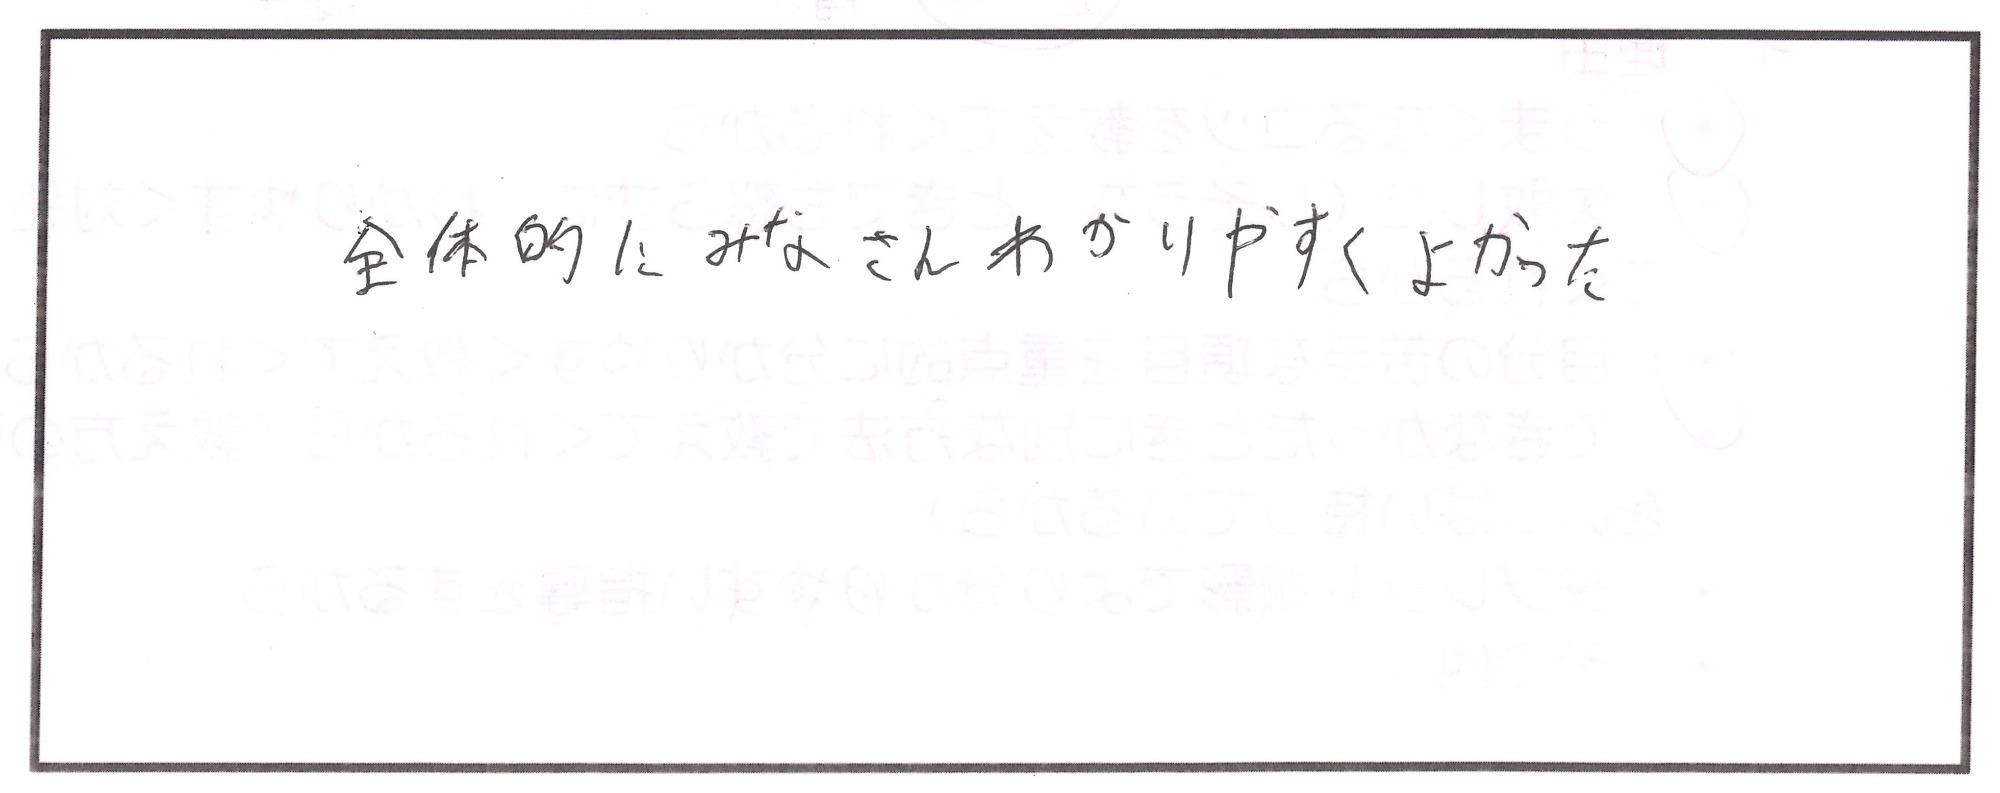 全体的にみなさんわかりやすくよかった